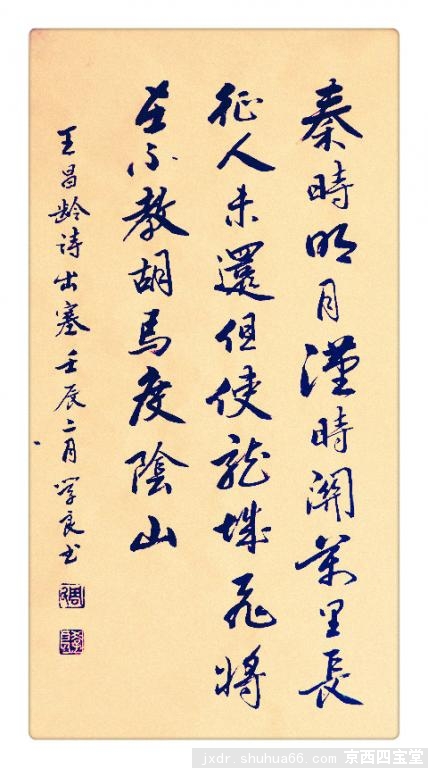 秦時明月漢時關萬里長
征人未還但使龍城飛將
在不教胡馬度陰山
王昌龄诗出塞壬辰二月学良书
jxdr.shuhua66.com 京西四宝堂